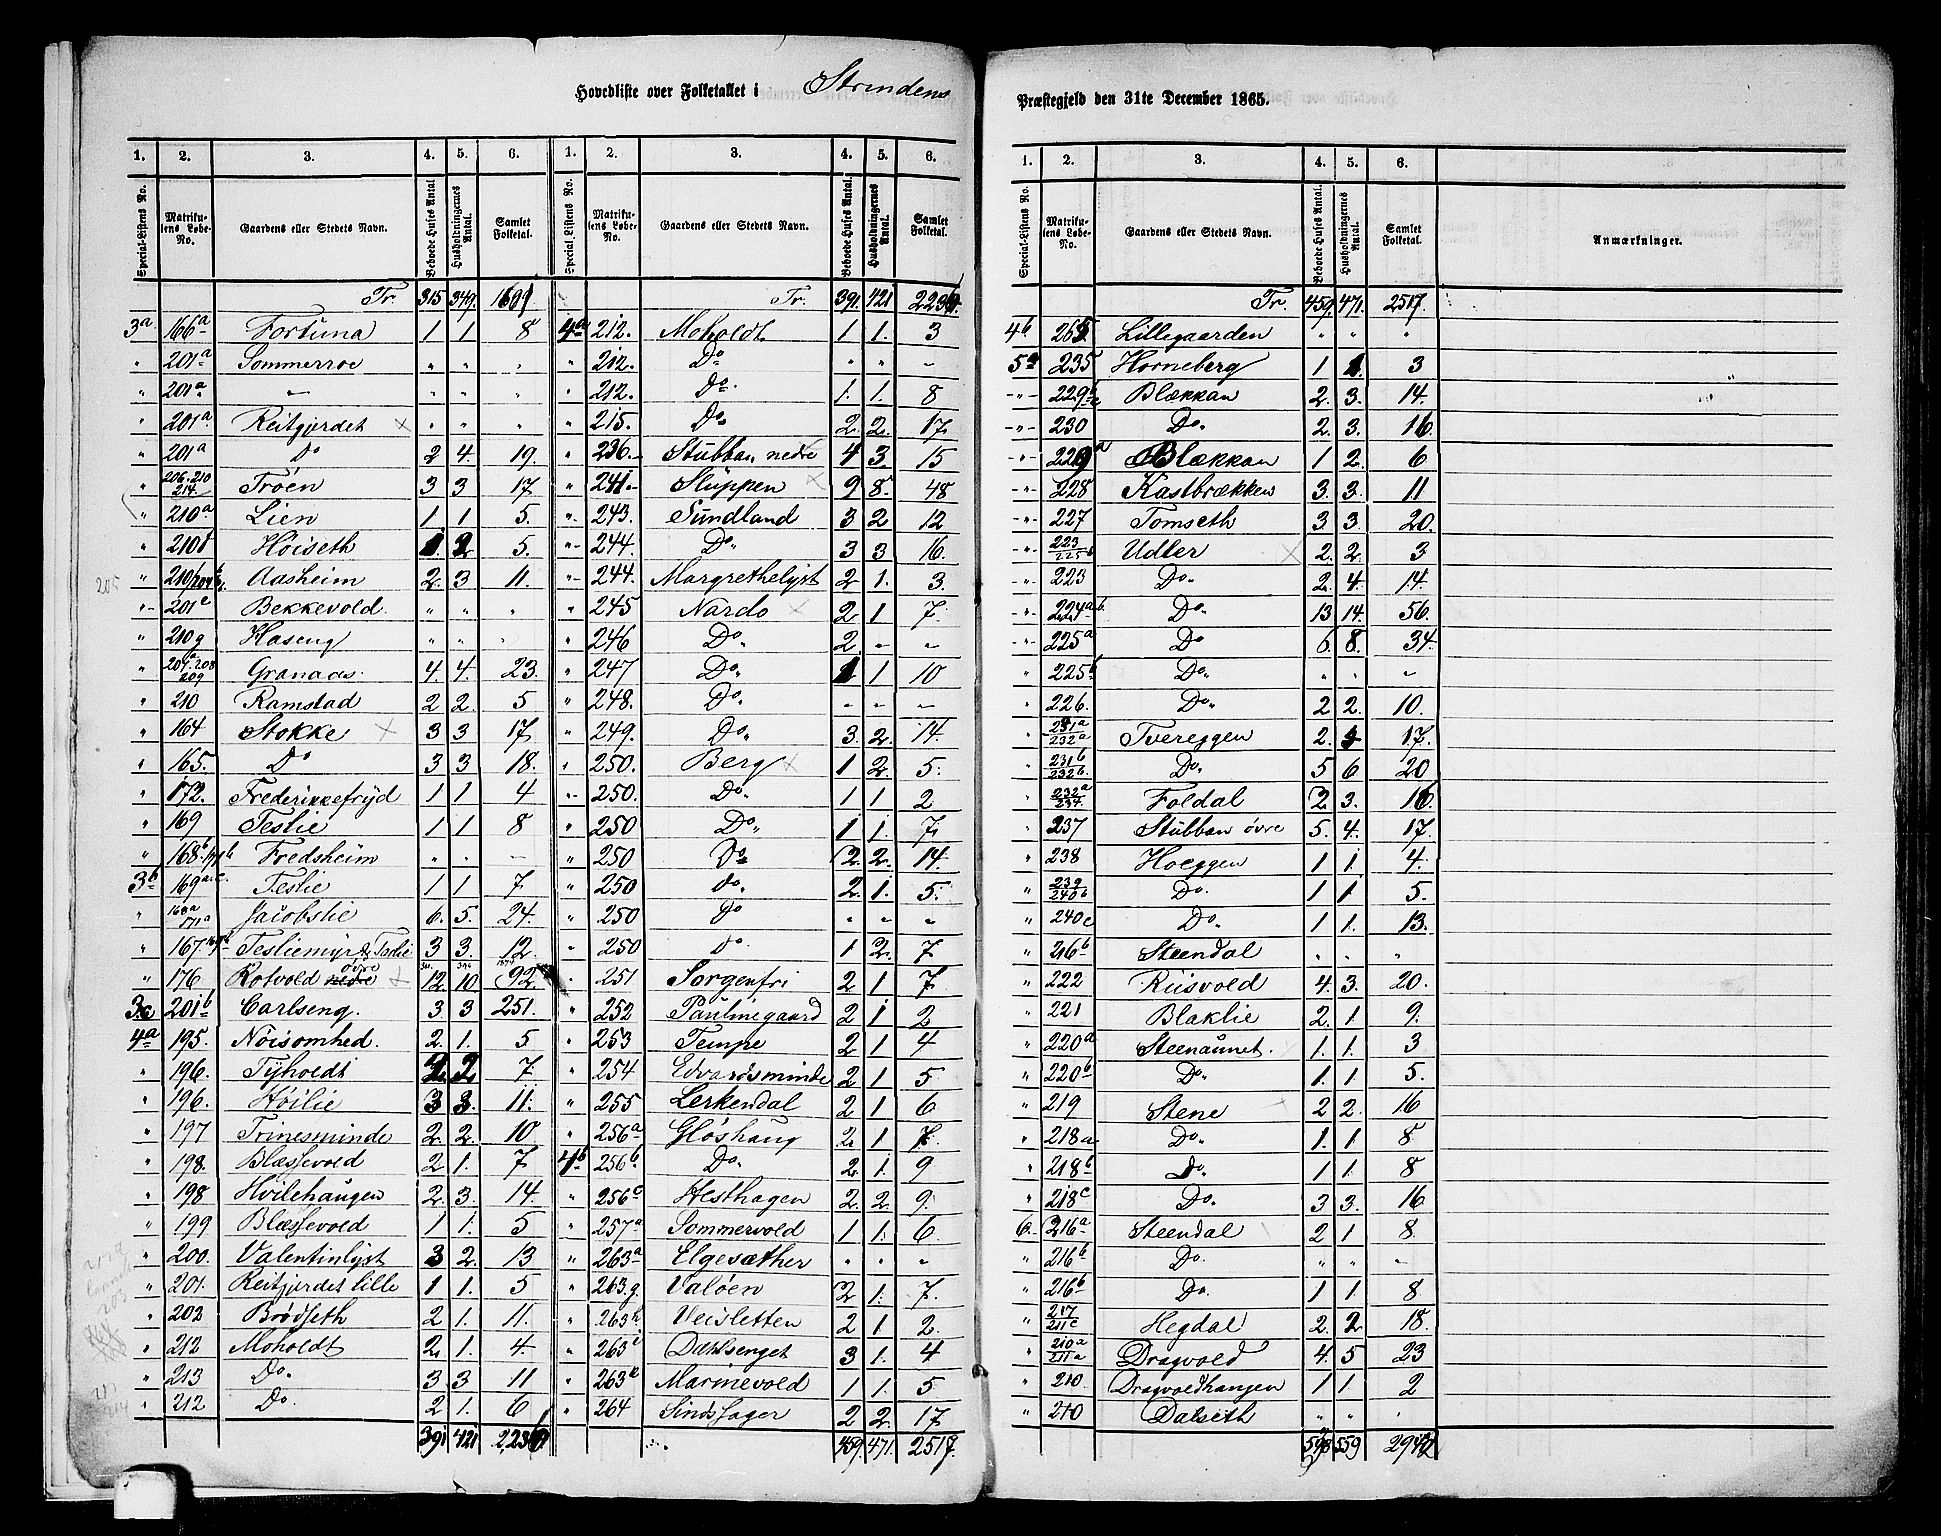 Hovedliste over Folketallet i Strindens
Præstegjeld den 31te December 1865.
1. 2. 3. 4. 5. 6. 1. 2. 3. 4. 5. 6.
Special-Listens No. Matrikulens Løbe-No. Gaardens eller Stedets Navn. Beboede Huses Antal. Husholdningernes Antal. Samlet Folketal. Special-Listens No. Matrikulens Løbe-No. Gaardens eller Stedets Navn. Beboede Huses Antal. Husholdningernes Antal. Samlet Folketal.
Tr. 315 349.
3a 166a Fortuna 1 1 8
" 201a Sommerroe " " "
" 201a " " " "
" 201a Reitgjerdet × " " "
" 201a Do 2 4. 19.
" 206.210 214. Trøen 3 3 17
" 210a Lien 1 1 5.
" Høiseth 5.
" Aasheim 2. 3 11.
" 201e Bekkevold. " " "
" 210g Haseng " " "
" 208 209 Granaas. 4. 4. 23.
" 210 Ramstad 2 2. 5
" 164 Stokke × 3 3 17.
" 165. Do 3 3. 18.
" 172. Frederikkefryd 1 1 4
" 169 Teslie 1 1 8
" 168b Fredsheim " " -
3b 169 Teslie 1 1 7
" 168a 171a Jacobslie 6. 5. 24.
" 167 Tesliemyr & Teslie 3 3. 12.
" 176 Rotvold øvre × 12. 10 92
3c 201b Carlseng. 3 3 251.
4a 195. Nøisomhed. 2. 1. 5
" 196. Tyholdt 2. 2. 7.
" 196. Høilie 3 3. 11.
" 197 Trinesminde 2. 2. 10.
" 198. Blæssevold 2 1. 7
" 198 Hvilehaugen 2. 3. 14.
" 199 Blæssevold 1 1. 5
" 200. Valentinlyst 3 2. 13
" 201. Reitgjerdet lille 1 1. 5
" 202 Brødseth 2 1. 11.
" 212 Moholdt 2. 1. 4.
" 213 Do. 3 3 11
" 212 Do. 2 1. 6
391 421
Tr. 391. 421
4a 212. Moholdt 1 1. 3
" 212. Do " " -
" 212. Do. 1. 1. 8
" 215. Do. 2. 2. 17.
" 236. Stubban nedre 4 3. 15
" 241. Sluppen × 9 8. 48
" 243. Sundland 3 2 12
" 244. Do. 3 3 16.
" 244. Margrethelyst 2 1. 3.
" 245 Nardo × 2 1 7.
" 246 Do 2 - -
" 247 Do. 1 1 10
" 248. Do. " " -
" 249. Do. 3. 2. 14.
" 250. Berg × 1 2. 5.
" 250. Do. 1 1 2
" 250 Do. 1 1. 7.
" 250 Do 2. 2. 14.
" 250 do. 2. 1. 5.
" 250 Do " " "
" 250 do. 1 2. 7
" 251 Sorgenfri 2 1 7
" 252 Paulinegaard 2 1 2
" 253 Tempe 2 1 4
" 254 Edvardsminde 2 1 5
" 255 Lerkendal 2 1 6
" 256a Gløshaug 2. 1 7.
4b 256b Do. 2 1. 9
" 256c Hesthagen 2 2 9.
" 257a Sommervold 1 1. 6
" 263a Elgesæther " " "
" 263.g. Valøen 2 1. 7.
" 263h Veisletten 2 1 2.
" 263i Dahlsenget 3 1. 4
" 263k Marinevold 1 1. 5
" 264 Sindsager 2 2. 17
459. 471. 2517.
1. 2. 3. 4. 5. 6.
Special-Listens No. Matrikulens Løbe-No. Gaardens eller Stedets Navn. Beboede Huses Antal. Husholdningernes Antal. Samlet Folketal. Anmærkninger.
Tr. 459 471. 2517.
4b Lillegaarden " " "
5a 235 Horneberg 1 1. 3
" Blækkan 2. 3. 14.
" 230 Do. 2. 3. 16.
" 229a Blækkan 1 2. 6
" 228 Kastbrækken 3. 3. 11
" 227 Tomseth 3. 3. 20.
" 223 225b Udler × 2. 2. 3
" 223 Do. 2. 4. 14.
" 224a b Do. 13 14. 56.
" 225a Do 6. 8. 34.
" 225b Do. " " -
" 226. Do. 2 2. 10.
" 231a 232a Tvereggen 2. 17.
" 231b 232b. Do. 5 6 20
" 232a 234 Foldal 2 3. 16
" 237 Stubban øvre 5. 4. 17.
" 238 Hoeggen 1 1. 4.
" 239 240b Do. 1 1 5.
" 240c Do. 1 1. 13.
" 216b Steendal " " "
" 222 Riisvold 4. 3. 20.
" 221 Blaklie 2. 1. 9.
" 220a Steenaunet. 1. 1. 3
" 220b Do. 1. 1. 5.
" 219 Stene 2 2. 16
" 218a Do. 1. 1. 8
" 218b Do. 1 1. 8
" 218c Do. 3 3. 16
6. 216a Steendal 2 1 8
" 216b Do. " " "
" 216b Do. 1 1. 8
" 217 211c Hegdal 2. 2 18.
" 210a 211a Dragvold 4. 5 23
" 210 Dragvoldhaugen 1 1. 2
" 210 Dalseth " " "
559